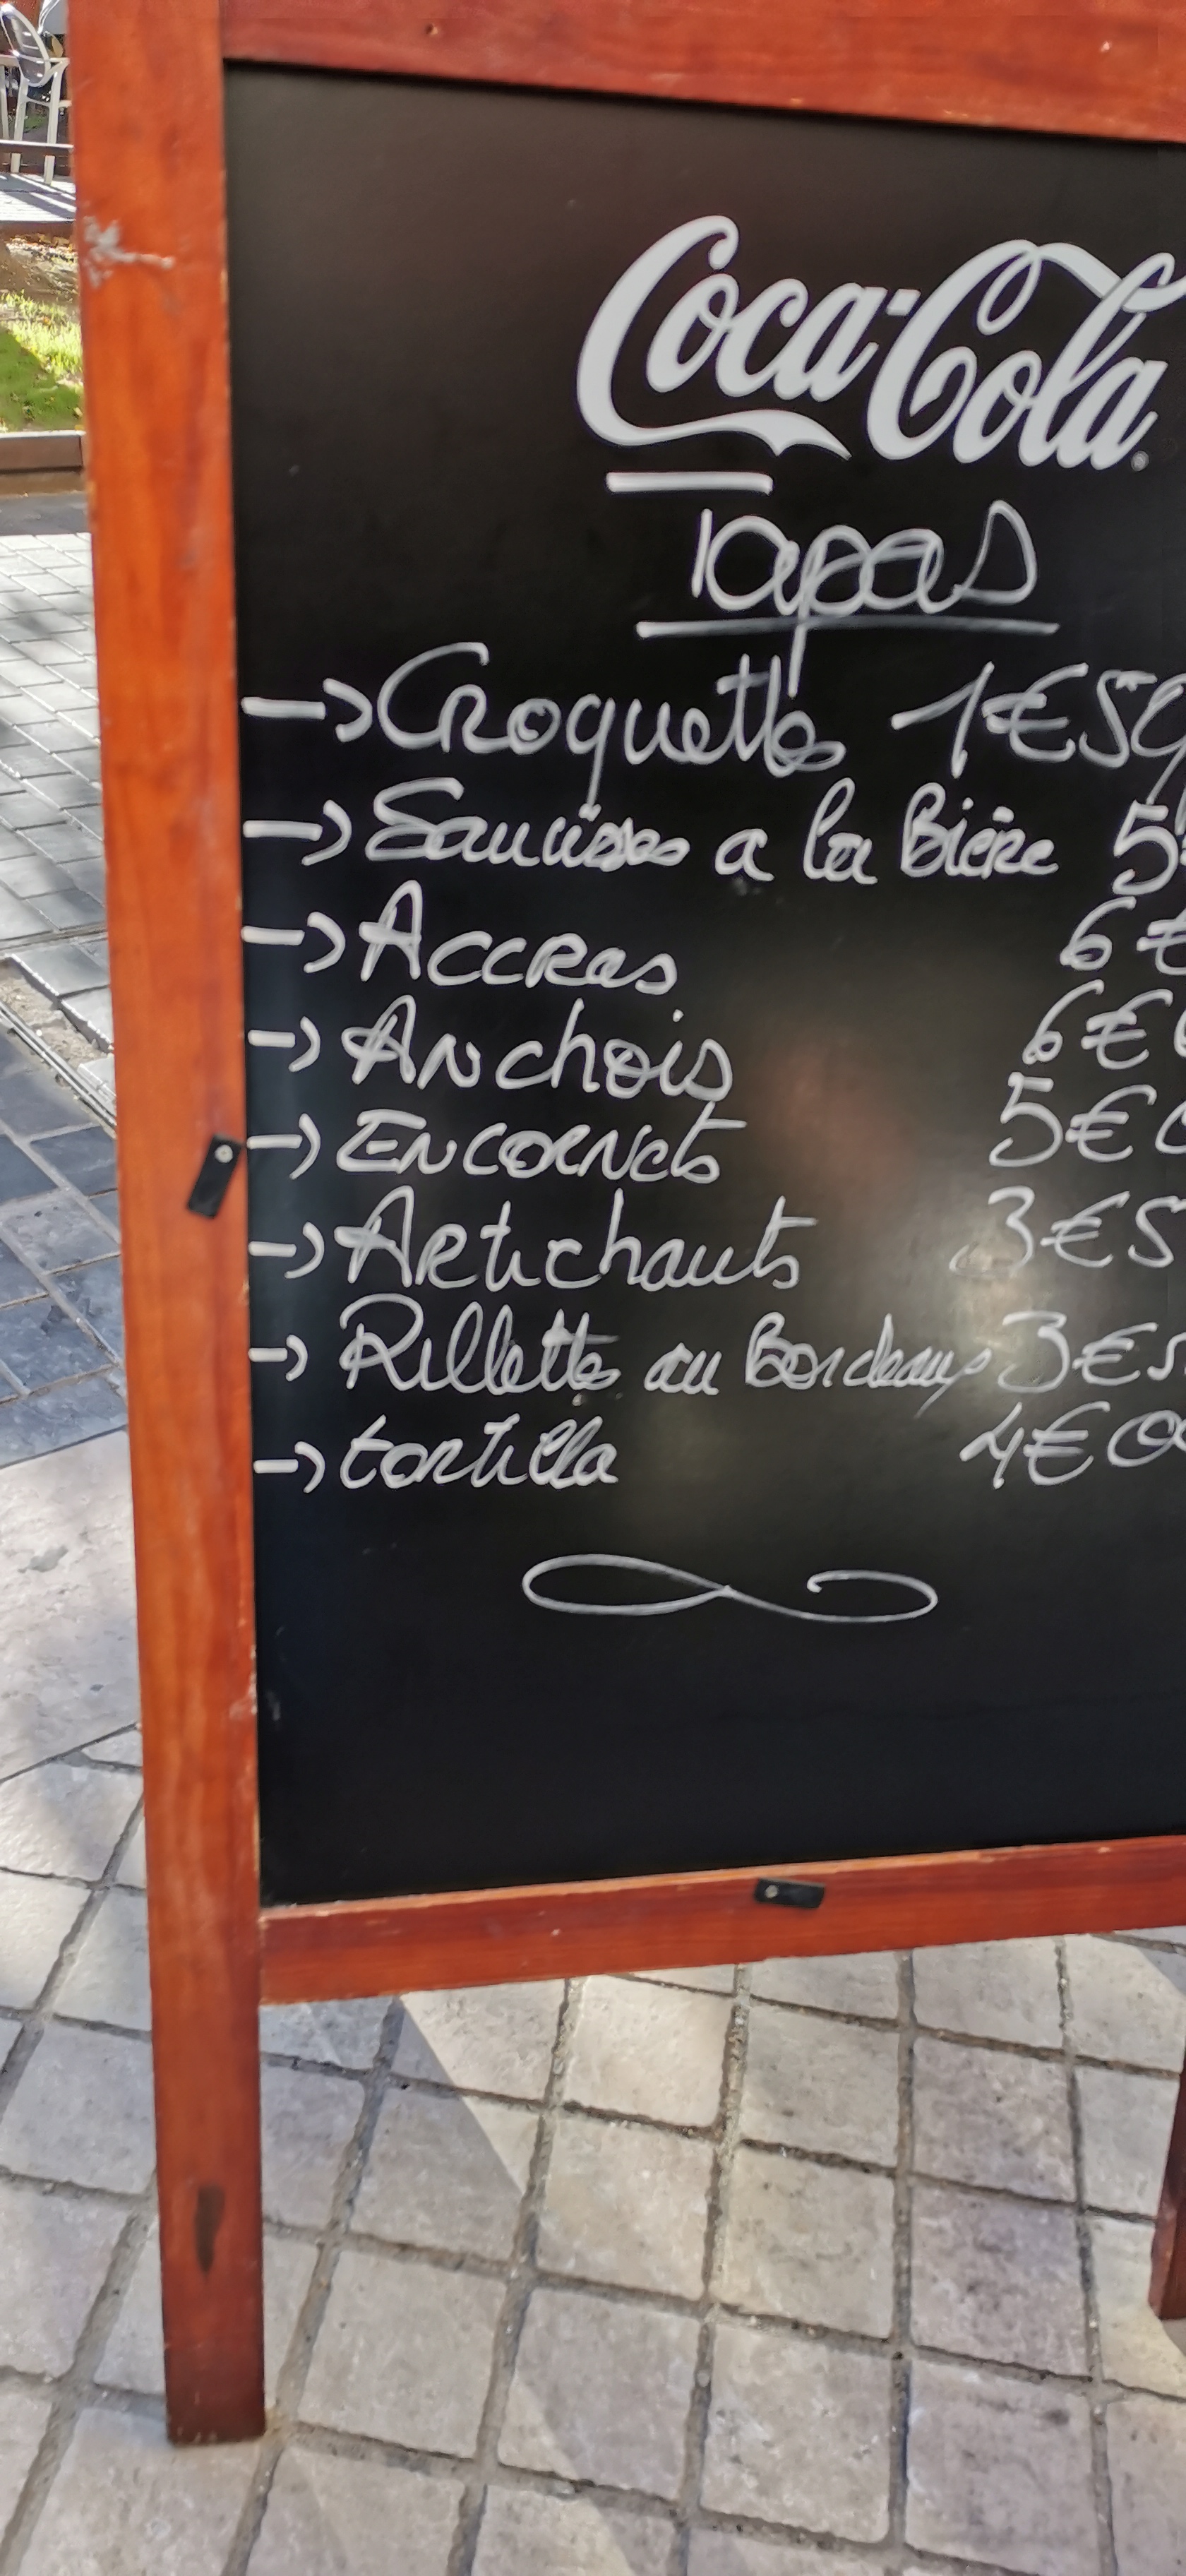 Coca-Cola
Tapas
→ Croquettes 1€50
→ Saucisses a la Bière 5€
→ Accras 6€
→ Anchois 6€0
→ Encornets 5€0
→ Artichauts 3€5
→ Rillettes au Bordeaux 3€5
→ tortilla 4€00